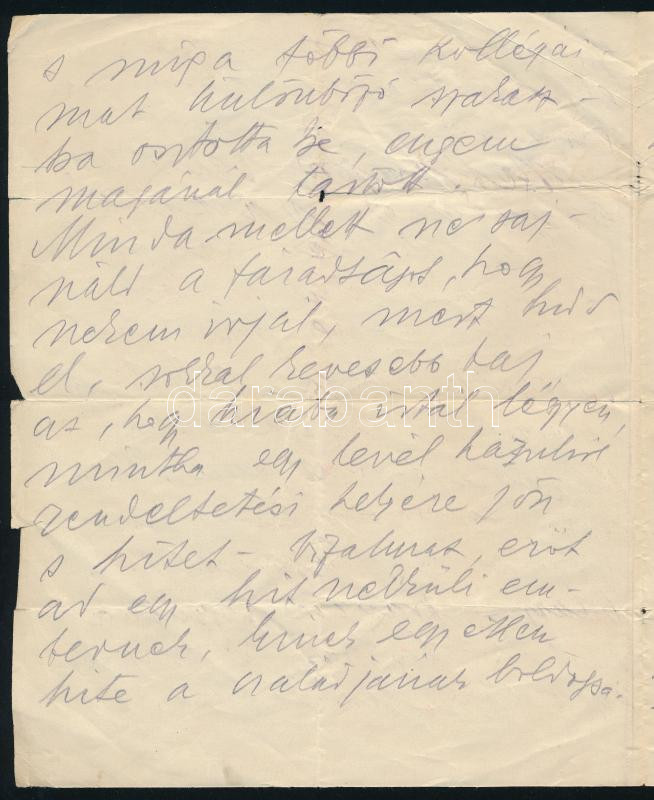 s míg a többi kollégái-
mat különböző szakasz-
ba osztotta be, engem
magánál tartott.
Mind a mellett ne saj-
náld a fáradságot, hogy
nekem írjál, mert hidd
el, sokkal kevesebb baj
az, hogy hiába írtál légyen,
mintha egy levél
rendeltetési helyére jön
s hitet - bizalmat, erőt
ad egy hit nélküli em-
bernek, kinek egyetlen
hite a családjának boldogsá-
darabanth